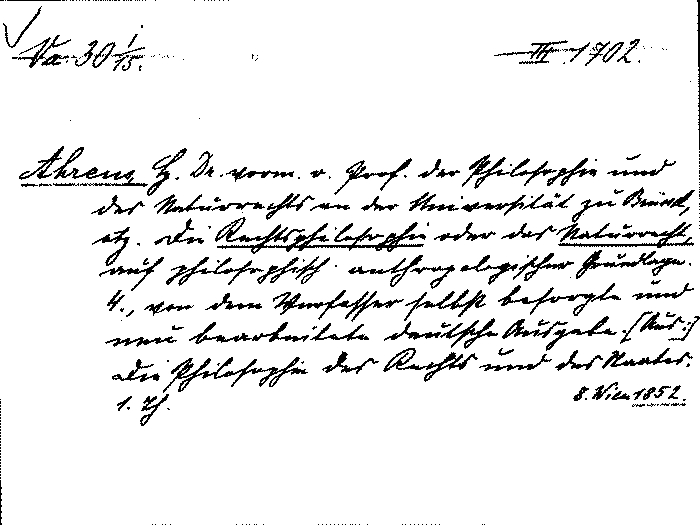 Va 30 1/15.
III 1702.
Ahrens, H. Dr. vorm. o. Prof. der Philosophie und
des Naturrechts an der Universität zu Brüssel,
etz. Die Rechtsphilosophie oder das Naturrecht,
auf philosophisch-anthropologischer Grundlage.
4., von dem Verfasser selbst besorgte und
neu bearbeitete deutsche Ausgabe. [Aus:]
Die Philosophie des Rechts und des Staates.
1. Th.
8. Wien 1852.